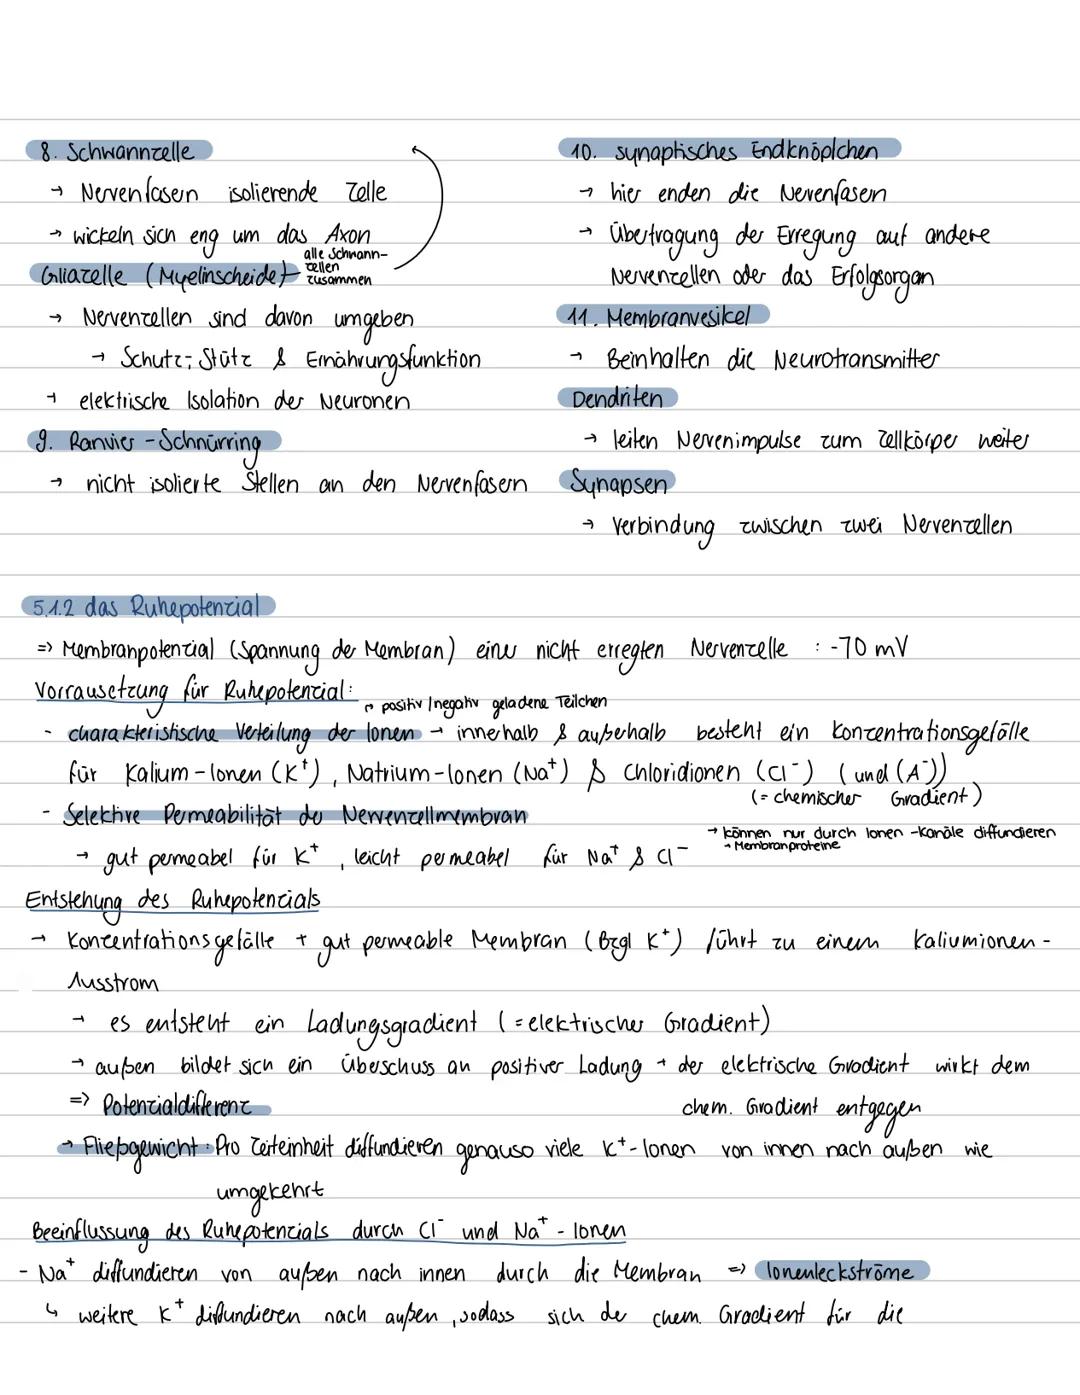 8. Schwannzelle
→ Nervenfasern isolierende Zelle
→ wickeln sich eng um das Axon
Gliazelle (Myelinscheide) → alle Schwann-
zellen
zusammen
→ Nervenzellen sind davon umgeben
→ Schutz-, Stütz & Ernährungsfunktion
→ elektrische Isolation der Neuronen
9. Ranvier-Schnürring
→ nicht isolierte Stellen an den Nervenfasern
10. synaptisches Endknöpfchen
→ hier enden die Nervenfasern
→ Übertragung der Erregung auf andere
Nervenzellen oder das Erfolgsorgan
11. Membranvesikel
→ Beinhalten die Neurotransmitter
Dendriten
→ leiten Nervenimpulse zum Zellkörper weiter
Synapsen
→ Verbindung zwischen zwei Nervenzellen
5.1.2 das Ruhepotenzial
=> Membranpotenzial (Spannung der Membran) einer nicht erregten Nervenzelle : -70 mV
Vorrausetzung für Ruhepotenzial:
→ positiv/negativ geladene Teilchen
- charakteristische Verteilung der Ionen → innerhalb & außerhalb besteht ein Konzentrationsgefälle
für Kalium-Ionen (K⁺), Natrium-Ionen (Na⁺) & Chloridionen (Cl⁻) (und (A⁻))
(= chemischer Gradient)
- Selektive Permeabilität der Nervenzellmembran
→ können nur durch Ionen-Kanäle diffundieren
→ Membranproteine
→ gut permeabel für K⁺, leicht permeabel für Na⁺ & Cl⁻
Entstehung des Ruhepotenzials
→ Konzentrationsgefälle + gut permeable Membran (Bzgl K⁺) führt zu einem Kaliumionen-
Ausstrom
→ es entsteht ein Ladungsgradient (= elektrischer Gradient)
→ außen bildet sich ein Überschuss an positiver Ladung → der elektrische Gradient wirkt dem
=> Potenzialdifferenz chem. Gradient entgegen
→ Fließgewicht: Pro Zeiteinheit diffundieren genauso viele K⁺-Ionen von innen nach außen wie
umgekehrt
Beeinflussung des Ruhepotenzials durch Cl⁻ und Na⁺-Ionen
- Na⁺ diffundieren von außen nach innen durch die Membran => Ionenleckströme
↳ weitere K⁺ diffundieren nach außen, sodass sich der chem. Gradient für die